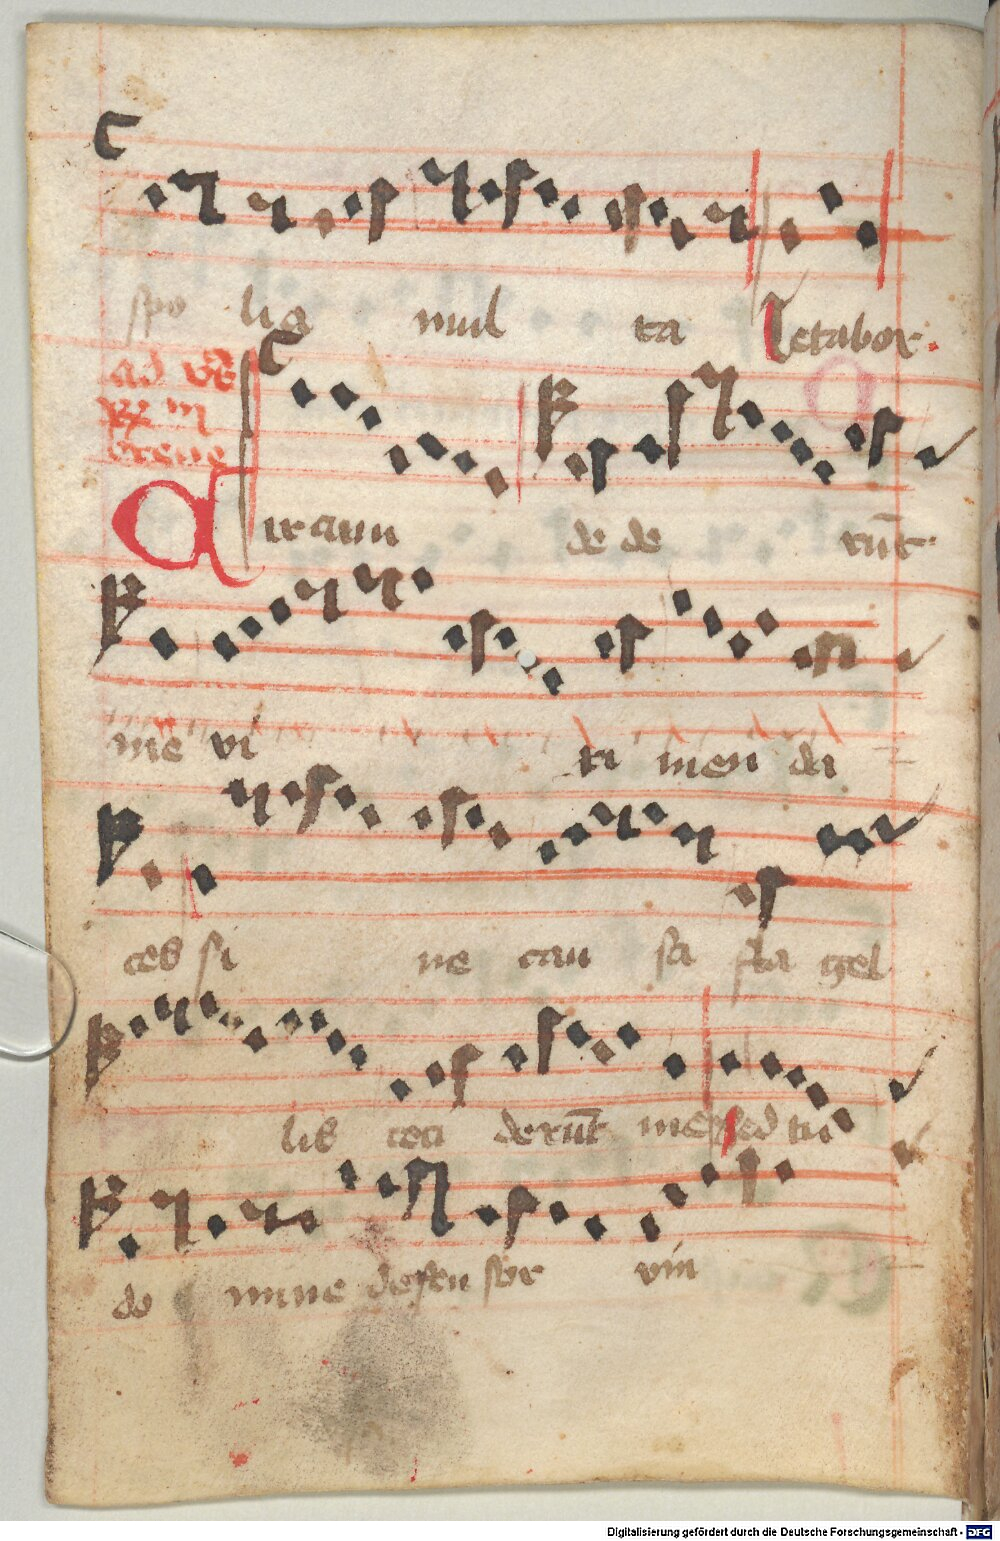 spo lia mul ta Letabor.
ad vesp
Rx in
breue
Circum de de runt.
me vi ri men da
ces si ne cau sa fla gel
lis ceci derunt me sed tu
do mine defen sor vin
Digitalisierung gefördert durch die Deutsche Forschungsgemeinschaft - DFG